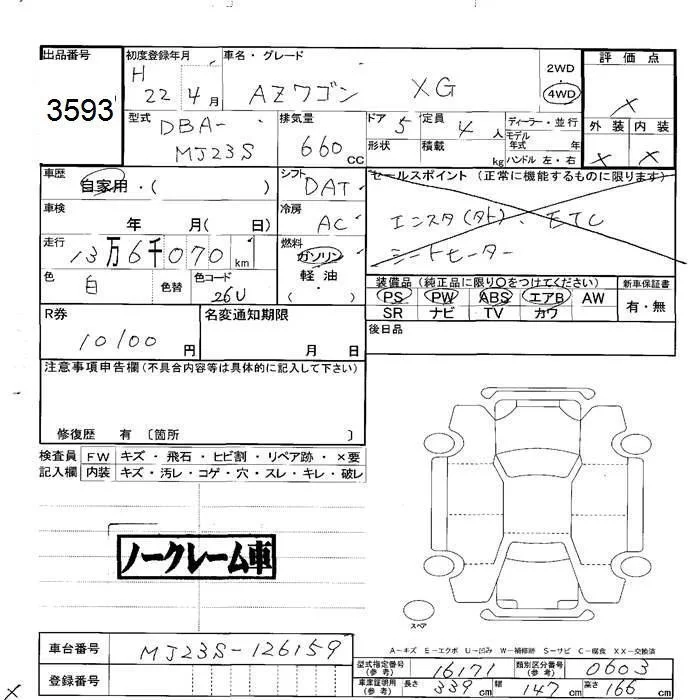 出品番号 初度登録年月 車名・グレード 評価点
3593 H 22 4月 AZワゴン XG 2WD 4WD ×
型式 DBA-MJ23S 排気量 660 cc ドア 5 定員 4 人 ディーラー・並行 外装 内装
形状 積載 kg モデル年式 年 ハンドル 左・右 × ×
車歴 自家用・( ) シフト DAT セールスポイント (正常に機能するものに限ります)
車検 年 月( 日) 冷房 AC エンスタ(タト)、ETC
シートヒーター
走行 13万6千070km 燃料 ガソリン 軽油 ・( )
色 白 色替 色コード 26U
装備品(純正品に限り○をつけてください) 新車保証書
PS PW ABS エアB AW 有・無
SR ナビ TV カワ
R券 10100円 名変通知期限 月 日 後日品
注意事項申告欄(不具合内容等は具体的に記入して下さい)
修復歴 有 〔箇所 〕
検査員 FW キズ・飛石・ヒビ割・リペア跡・×要
記入欄 内装 キズ・汚レ・コゲ・穴・スレ・キレ・破レ
ノークレーム車
スペア
A－キズ E－エクボ U－凹み W－補修跡 S－サビ C－腐食 XX－交換済
車台番号 MJ23S-126159 型式指定番号(参考) 16171 類別区分番号(参考) 0603
登録番号 車庫証明用(参考) 長さ 339cm 幅 147cm 高さ 166cm
×